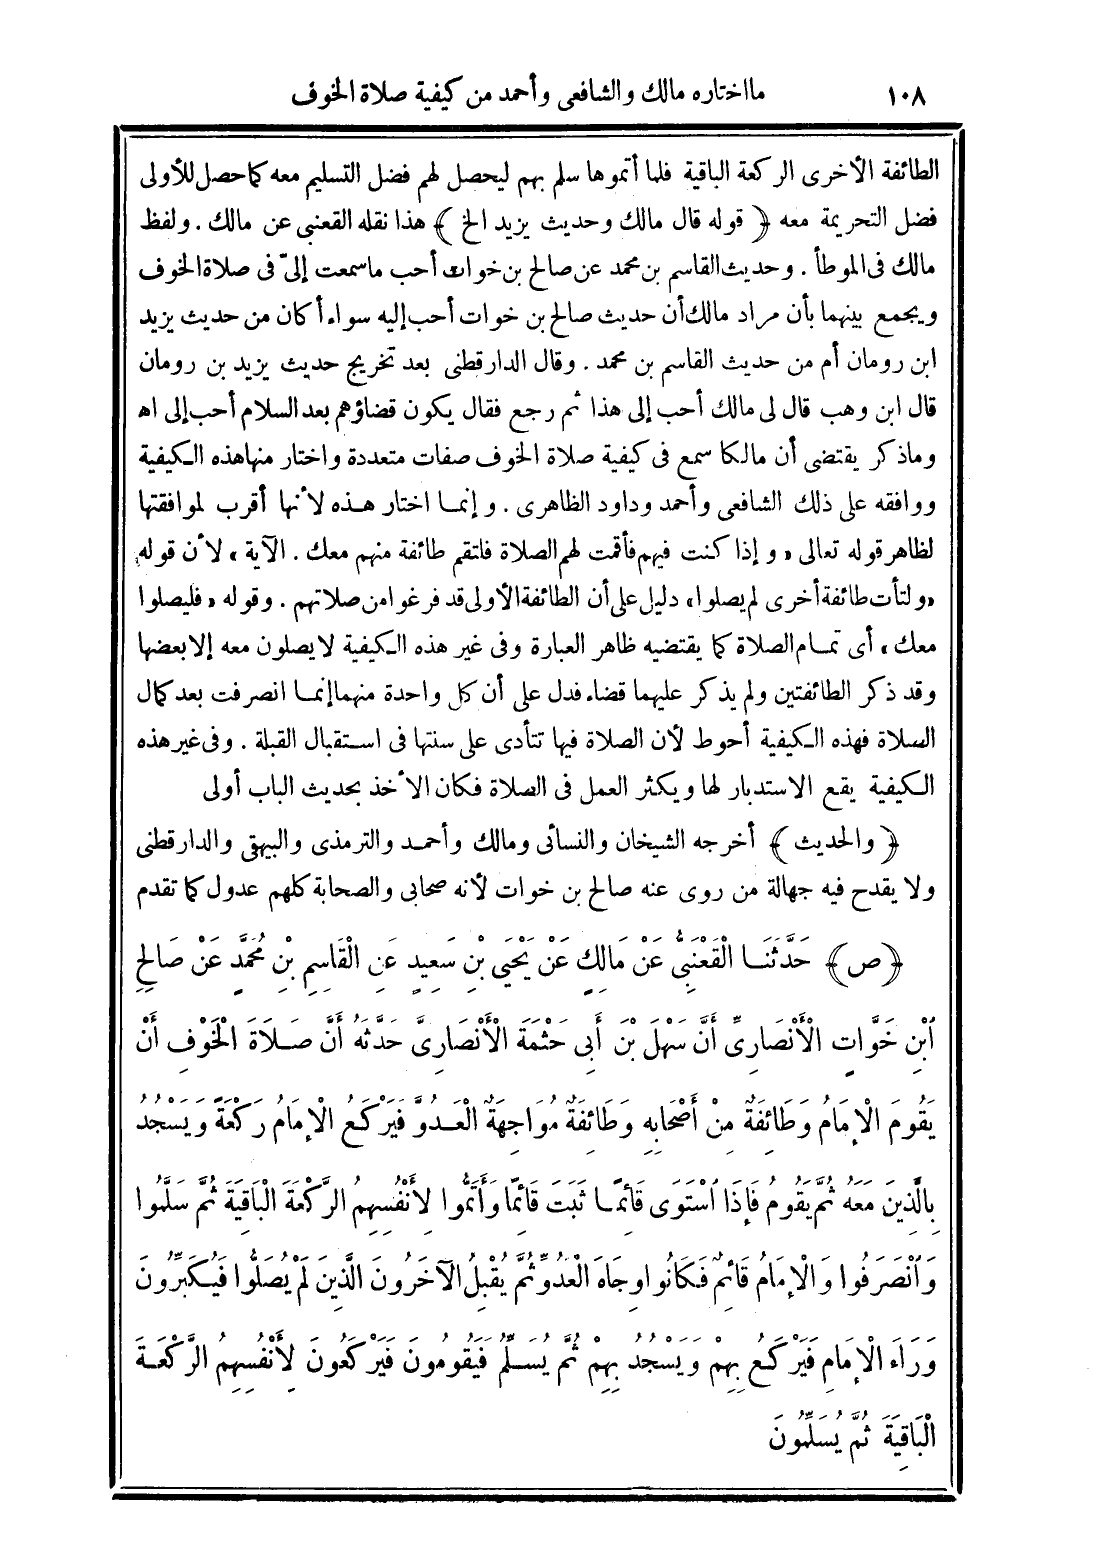 ١٠٨ ما اختاره مالك والشافعى وأحمد من كيفية صلاة الخوف
الطائفة الأخرى الركعة الباقية فلما أتموها سلم بهم ليحصل لهم فضل التسليم معه كما حصل للأولى
فضل التحريمة معه ﴿ قوله قال مالك وحديث يزيد الخ ﴾ هذا نقله القعنبى عن مالك . ولفظ
مالك فى الموطأ . وحديث القاسم بن محمد عن صالح بن خوات أحب ما سمعت إلىّ فى صلاة الخوف
ويجمع بينهما بأن مراد مالك أن حديث صالح بن خوات أحب إليه سواء أكان من حديث يزيد
ابن رومان أم من حديث القاسم بن محمد . وقال الدارقطنى بعد تخريج حديث يزيد بن رومان
قال ابن وهب قال لى مالك أحب إلى هذا ثم رجع فقال يكون قضاؤهم بعد السلام أحب إلى اه
وما ذكر يقتضى أن مالكا سمع فى كيفية صلاة الخوف صفات متعددة واختار منها هذه الكيفية
ووافقه على ذلك الشافعى وأحمد وداود الظاهرى . وإنما اختار هذه لأنها أقرب لموافقتها
لظاهر قوله تعالى «وإذا كنت فيهم فأقمت لهم الصلاة فلتقم طائفة منهم معك . الآية» لأن قوله
«ولتأت طائفة أخرى لم يصلوا» دليل على أن الطائفة الأولى قد فرغوا من صلاتهم . وقوله «فليصلوا
معك» أى تمام الصلاة كما يقتضيه ظاهر العبارة وفى غير هذه الكيفية لا يصلون معه إلا بعضها
وقد ذكر الطائفتين ولم يذكر عليهما قضاء فدل على أن كل واحدة منهما إنما انصرفت بعد كمال
الصلاة فهذه الكيفية أحوط لأن الصلاة فيها تتأدى على سنتها فى استقبال القبلة . وفى غير هذه
الكيفية يقع الاستدبار لها ويكثر العمل فى الصلاة فكان الأخذ بحديث الباب أولى
﴿ والحديث ﴾ أخرجه الشيخان والنسائى ومالك وأحمد والترمذى والبيهقى والدارقطنى
ولا يقدح فيه جهالة من روى عنه صالح بن خوات لأنه صحابى والصحابة كلهم عدول كما تقدم
﴿ص﴾ حَدَّثَنَا الْقَعْنَبِىُّ عَنْ مَالِكٍ عَنْ يَحْيَى بْنِ سَعِيدٍ عَنِ الْقَاسِمِ بْنِ مُحَمَّدٍ عَنْ صَالِحِ
ابْنِ خَوَّاتٍ الْأَنْصَارِىِّ أَنَّ سَهْلَ بْنَ أَبِى حَثْمَةَ الْأَنْصَارِىَّ حَدَّثَهُ أَنَّ صَلَاةَ الْخَوْفِ أَنْ
يَقُومَ الْإِمَامُ وَطَائِفَةٌ مِنْ أَصْحَابِهِ وَطَائِفَةٌ مُوَاجِهَةُ الْعَدُوِّ فَيَرْكَعُ الْإِمَامُ رَكْعَةً وَيَسْجُدُ
بِالَّذِينَ مَعَهُ ثُمَّ يَقُومُ فَإِذَا اسْتَوَى قَائِمًا ثَبَتَ قَائِمًا وَأَتَمُّوا لِأَنْفُسِهِمُ الرَّكْعَةَ الْبَاقِيَةَ ثُمَّ سَلَّمُوا
وَانْصَرَفُوا وَالْإِمَامُ قَائِمٌ فَكَانُوا وِجَاهَ الْعَدُوِّ ثُمَّ يُقْبِلُ الْآخَرُونَ الَّذِينَ لَمْ يُصَلُّوا فَيُكَبِّرُونَ
وَرَاءَ الْإِمَامِ فَيَرْكَعُ بِهِمْ وَيَسْجُدُ بِهِمْ ثُمَّ يُسَلِّمُ فَيَقُومُونَ فَيَرْكَعُونَ لِأَنْفُسِهِمُ الرَّكْعَةَ
الْبَاقِيَةَ ثُمَّ يُسَلِّمُونَ